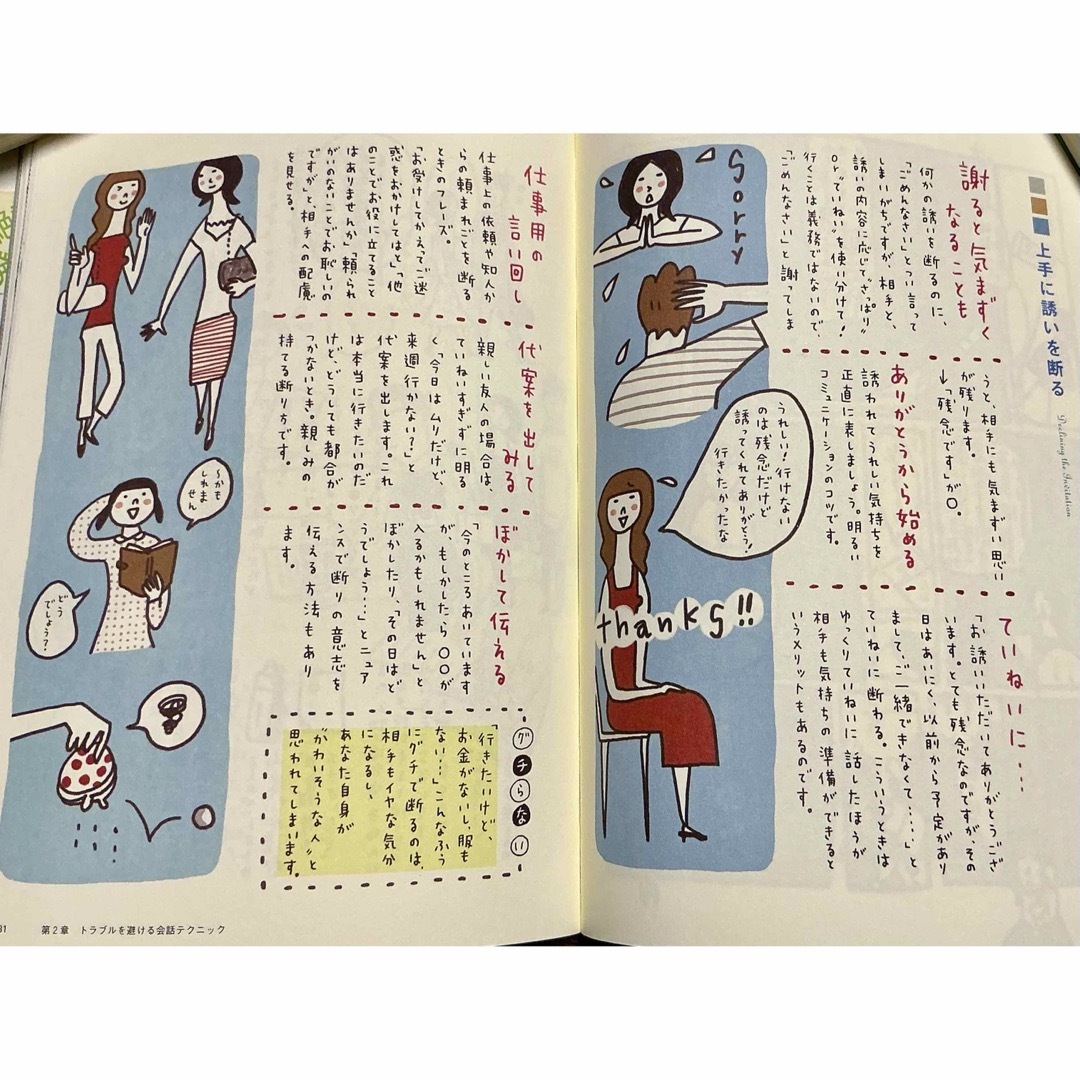 上手に誘いを断る
Declining the Invitation
謝ると気まずく
なることも
何かの誘いを断るのに、
「ごめんなさい」とつい言って
しまいがちですが、相手と、
誘いの内容に応じて“さっぱり”
or“ていねい”を使い分けて！
行くことは義務ではないので、
「ごめんなさい」と謝ってしま
うと、相手にも気まずい思い
が残ります。
→「残念です」が〇。
ありがとうから始める
誘われてうれしい気持ちを
正直に表しましょう。明るい
コミュニケーションのコツです。
ていねいに…
「お誘いいただいてありがとうござ
います。とても残念なのですが、その
日はあいにく、以前から予定があり
まして、ご一緒できなくて……」と
ていねいに断わる。こういうときは
ゆっくりていねいに話したほうが
相手も気持ちの準備ができると
いうメリットもあるのです。
Sorry
うれしい！行けない
のは残念だけど
誘ってくれてありがとう！
行きたかったな
thanks!!
仕事用の
言い回し
仕事上の依頼や知人か
らの頼まれごとを断る
ときのフレーズ。
「お受けしてかえってご迷
惑をおかけしては」と「他
のことでお役に立てること
はありませんか」「頼られ
がいのないことでお恥しいの
ですが」と、相手への配慮
を見せる。
代案を出して
みる
親しい友人の場合は、
ていねいすぎずに明る
く「今日はムリだけど、
来週行かない？」と
代案を出します。これ
は本当に行きたいのだ
けど、どうしても都合が
つかないとき。親しみの
持てる断り方です。
ぼかして伝える
「今のところあいています
が、もしかしたら〇〇が
入るかもしれません」と
ぼかしたり、「その日はど
うでしょう…」とニュア
ンスで断りの意志を
伝える方法もあり
ます。
グチらない
「行きたいけど、
お金がないし、服も
ない…」こんなふう
にグチで断るのは、
相手もイヤな気分
になるし、
あなた自身が
“かわいそうな人”と
思われてしまいます。
〜かも
しれま
せん
どう
でしょう？
81
第2章 トラブルを避ける会話テクニック